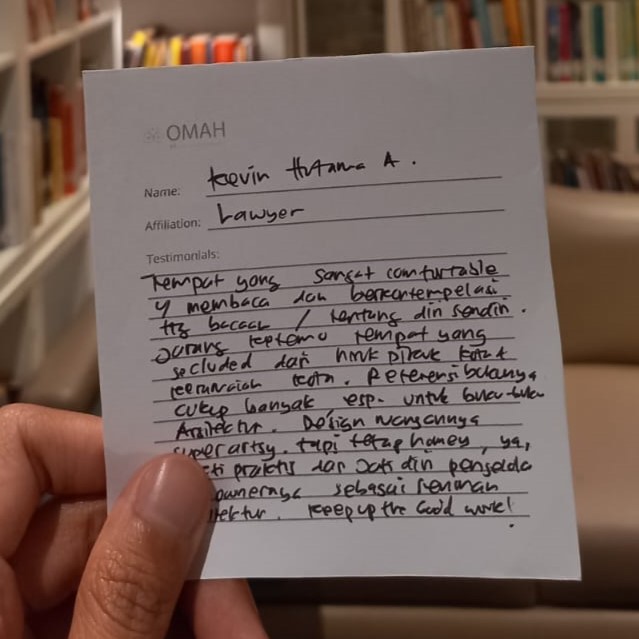 OMAH
Name: Kevin Hutama A.
Affiliation: Lawyer
Testimonials:
Tempat yang sangat comfortable
y membaca dan berkontempelasi
ttg bacaan / tentang diri sendiri.
Jarang ketemu tempat yang
secluded dari hiruk pikuk kota &
keramaian kota. Referensi bukunya
cukup banyak esp. untuk buku-buku
Arsitektur. Design ruangannya
super artsy. tapi tetap homey, ya,
praktis dan jati diri pengelola
ownernya sebagai seniman
Keep up the Good work!